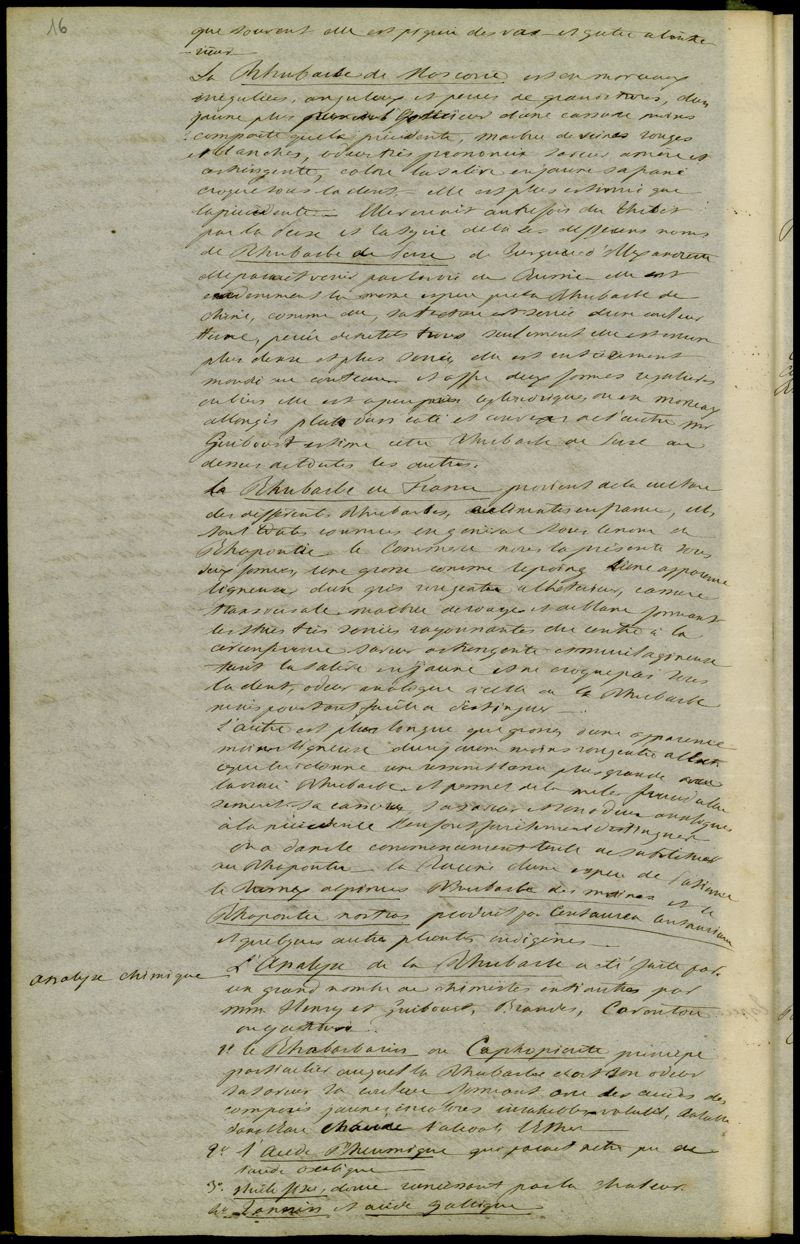 16
que souvent elle est piquée des vers et gatée à l'inté
-rieur
La Rhubarbe de Moscovie est en morceaux
irréguliers, anguleux et percés de grands trous, d'un
jaune plus pur à l'extérieur d'une cassure moins
compacte que la précédente, marbrée de veines rouges
et blanches, odeur très prononcée saveur amère et
astringente, colore la salive en jaune safrané
croque sous la dent - elle est plus estimée que
la précédente - Elle venait autrefois du Thibet
par la Perse et la Syrie de là ses différens noms
de Rhubarbe de Perse de Turquie d'Alexandrie
elle parait venir par la voie de Russie elle est
évidemment la même espèce que la Rhubarbe de
Chine, comme elle, sa texture est serrée d'une couleur
terne, percée de petits trous seulement elle est encore
plus dense et plus serrée, elle est entièrement
mondée au couteau et offre deux formes régulières
ou bien elle est à peu près cylindrique ou en morceaux
allongés plats d'un coté et convexes de l'autre Mr
Guibourt estime cette Rhubarbe de Perse au
dessus de toutes les autres.
La Rhubarbe de France provient de la culture
des différentes Rhubarbes, acclimatées en france, elles
sont toutes connues en général sous le nom de
Rhapontic le Commerce nous la présente sous
deux formes, l'une grosse comme le poing d'une apparence
ligneuse d'un gris rougeatre à l'extérieur, cassure
transversale marbrée de rouge et de blanc formant
des stries très serrées rayonnantes du centre à la
circonférence saveur astringente et mucilagineuse
teint la salive en jaune et ne croque pas sous
la dent, odeur analogue à celle de la Rhubarbe
mais pourtant facile à distinguer
L'autre est plus longue que grosse, d'une apparence
moins ligneuse d'un jaune moins rougeatre
ce qui lui donne une ressemblance plus grande avec
la vraie Rhubarbe et permet de la mêler
sa cassure, sa saveur et son odeur analogues
à la précédente l'en font facilement distinguer
On a dans le commencement tenté de substituer
au Rhapontic la Racine d'une espèce de
le Rumex alpinus Rhubarbe des moines et le
Rhapontic nostras produit par Centaurea Centaurium
et quelques autres plantes indigènes
analyse chimique
L'Analyse de la Rhubarbe a été faite par
un grand nombre de chimistes entr'autres par
mm. Henry et Guibourt, Brandes, Caventou
on y a trouvé
1° le Rhabarbarin ou Caphopicrite principe
particulier auquel la Rhubarbe doit son odeur
sa saveur sa couleur formant avec des acides des
composés jaunes, incolores insolubles volatil, soluble
dans l'eau chaude l'alcool, l'Ether
2° l'acide Rheumique qui parait n'être que de
l'acide oxalique
3° Huile fixe, douce rancissant par la chaleur.
4° Tannin et acide gallique